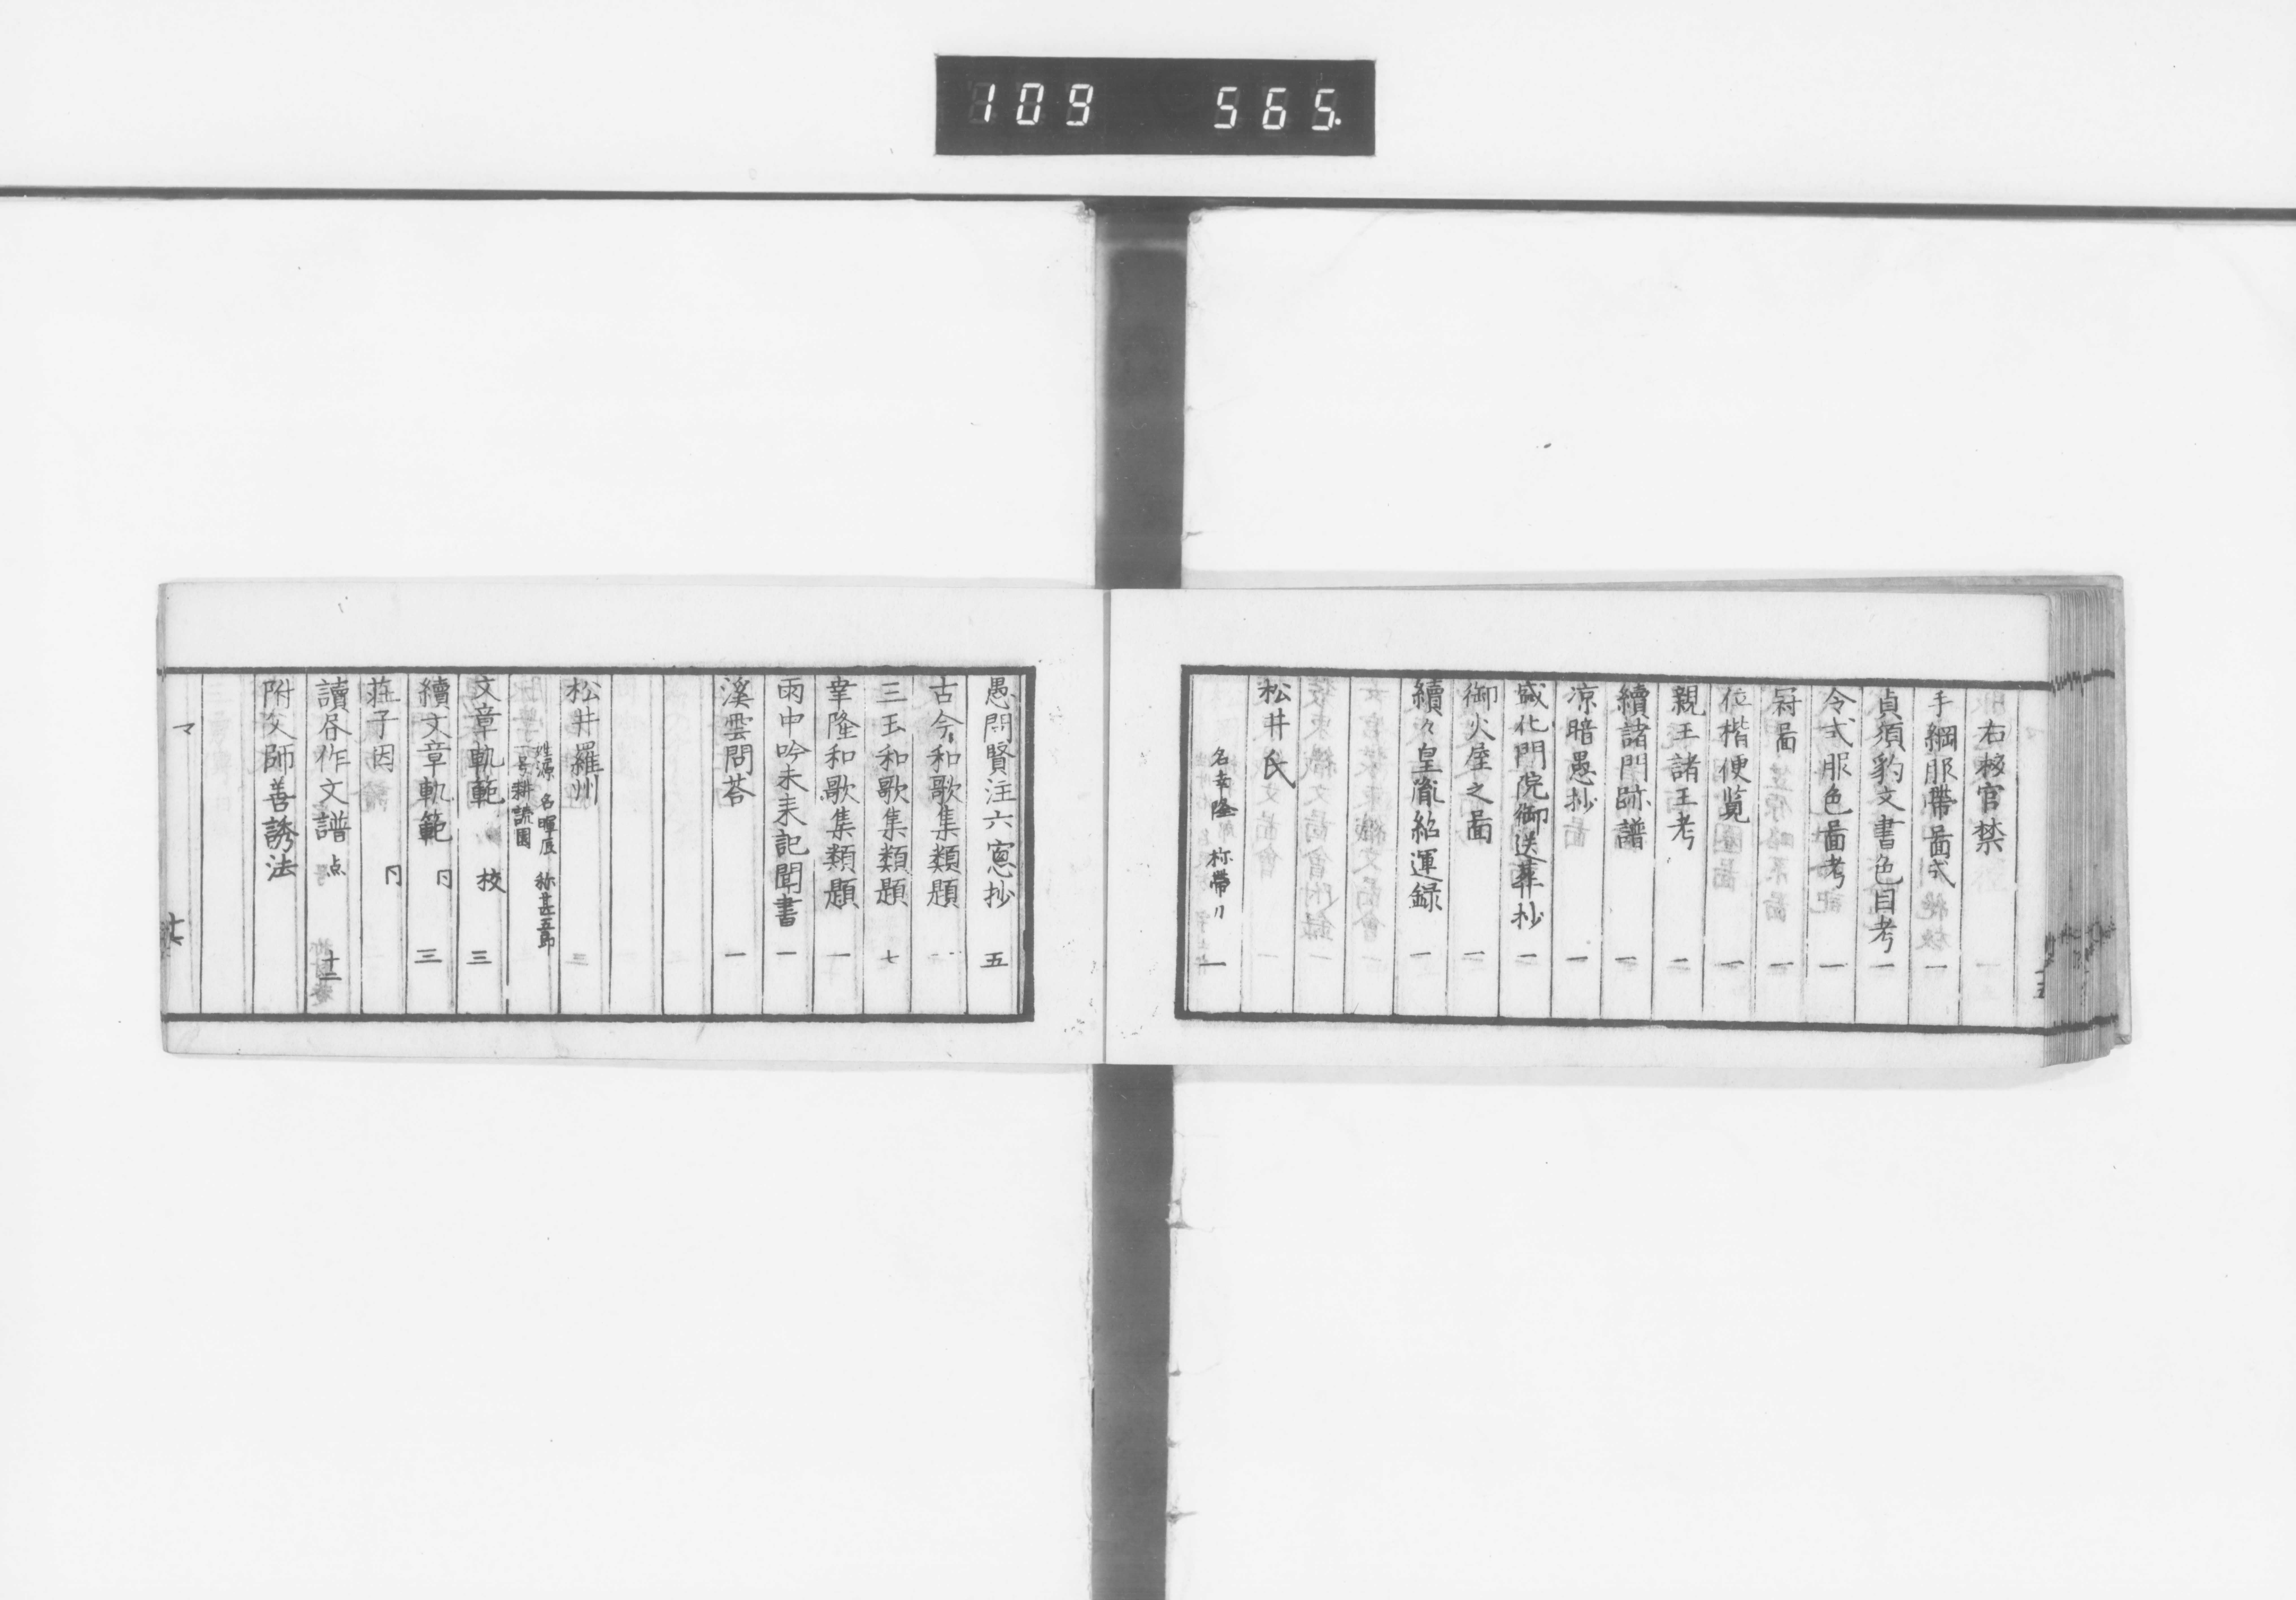 109 565.
右校官禁
手綱服帶啚式 一
貞須豹文書色目考 一
令式服色啚考 一
冠啚 一
位楷便覧 一
親王諸王考 二
續諸門跡譜 一
凉暗愚抄 一
盛化門院御送葬抄 一
御火屋之啚 一
續々皇胤紹運録 一
松井氏
名幸隆 称帶刀
愚問賢注六窓抄 五
古今和歌集類題
三玉和歌集類題 七
幸隆和歌集類題 一
雨中吟未来記聞書 一
溪雲問荅 一
松井羅州
姓源 名暉辰 称甚五郎
一号耕讀園
文章軌範 校 三
續文章軌範 同 三
莊子因 同
讀荅作文譜 点 十二
附父師善誘法
マ